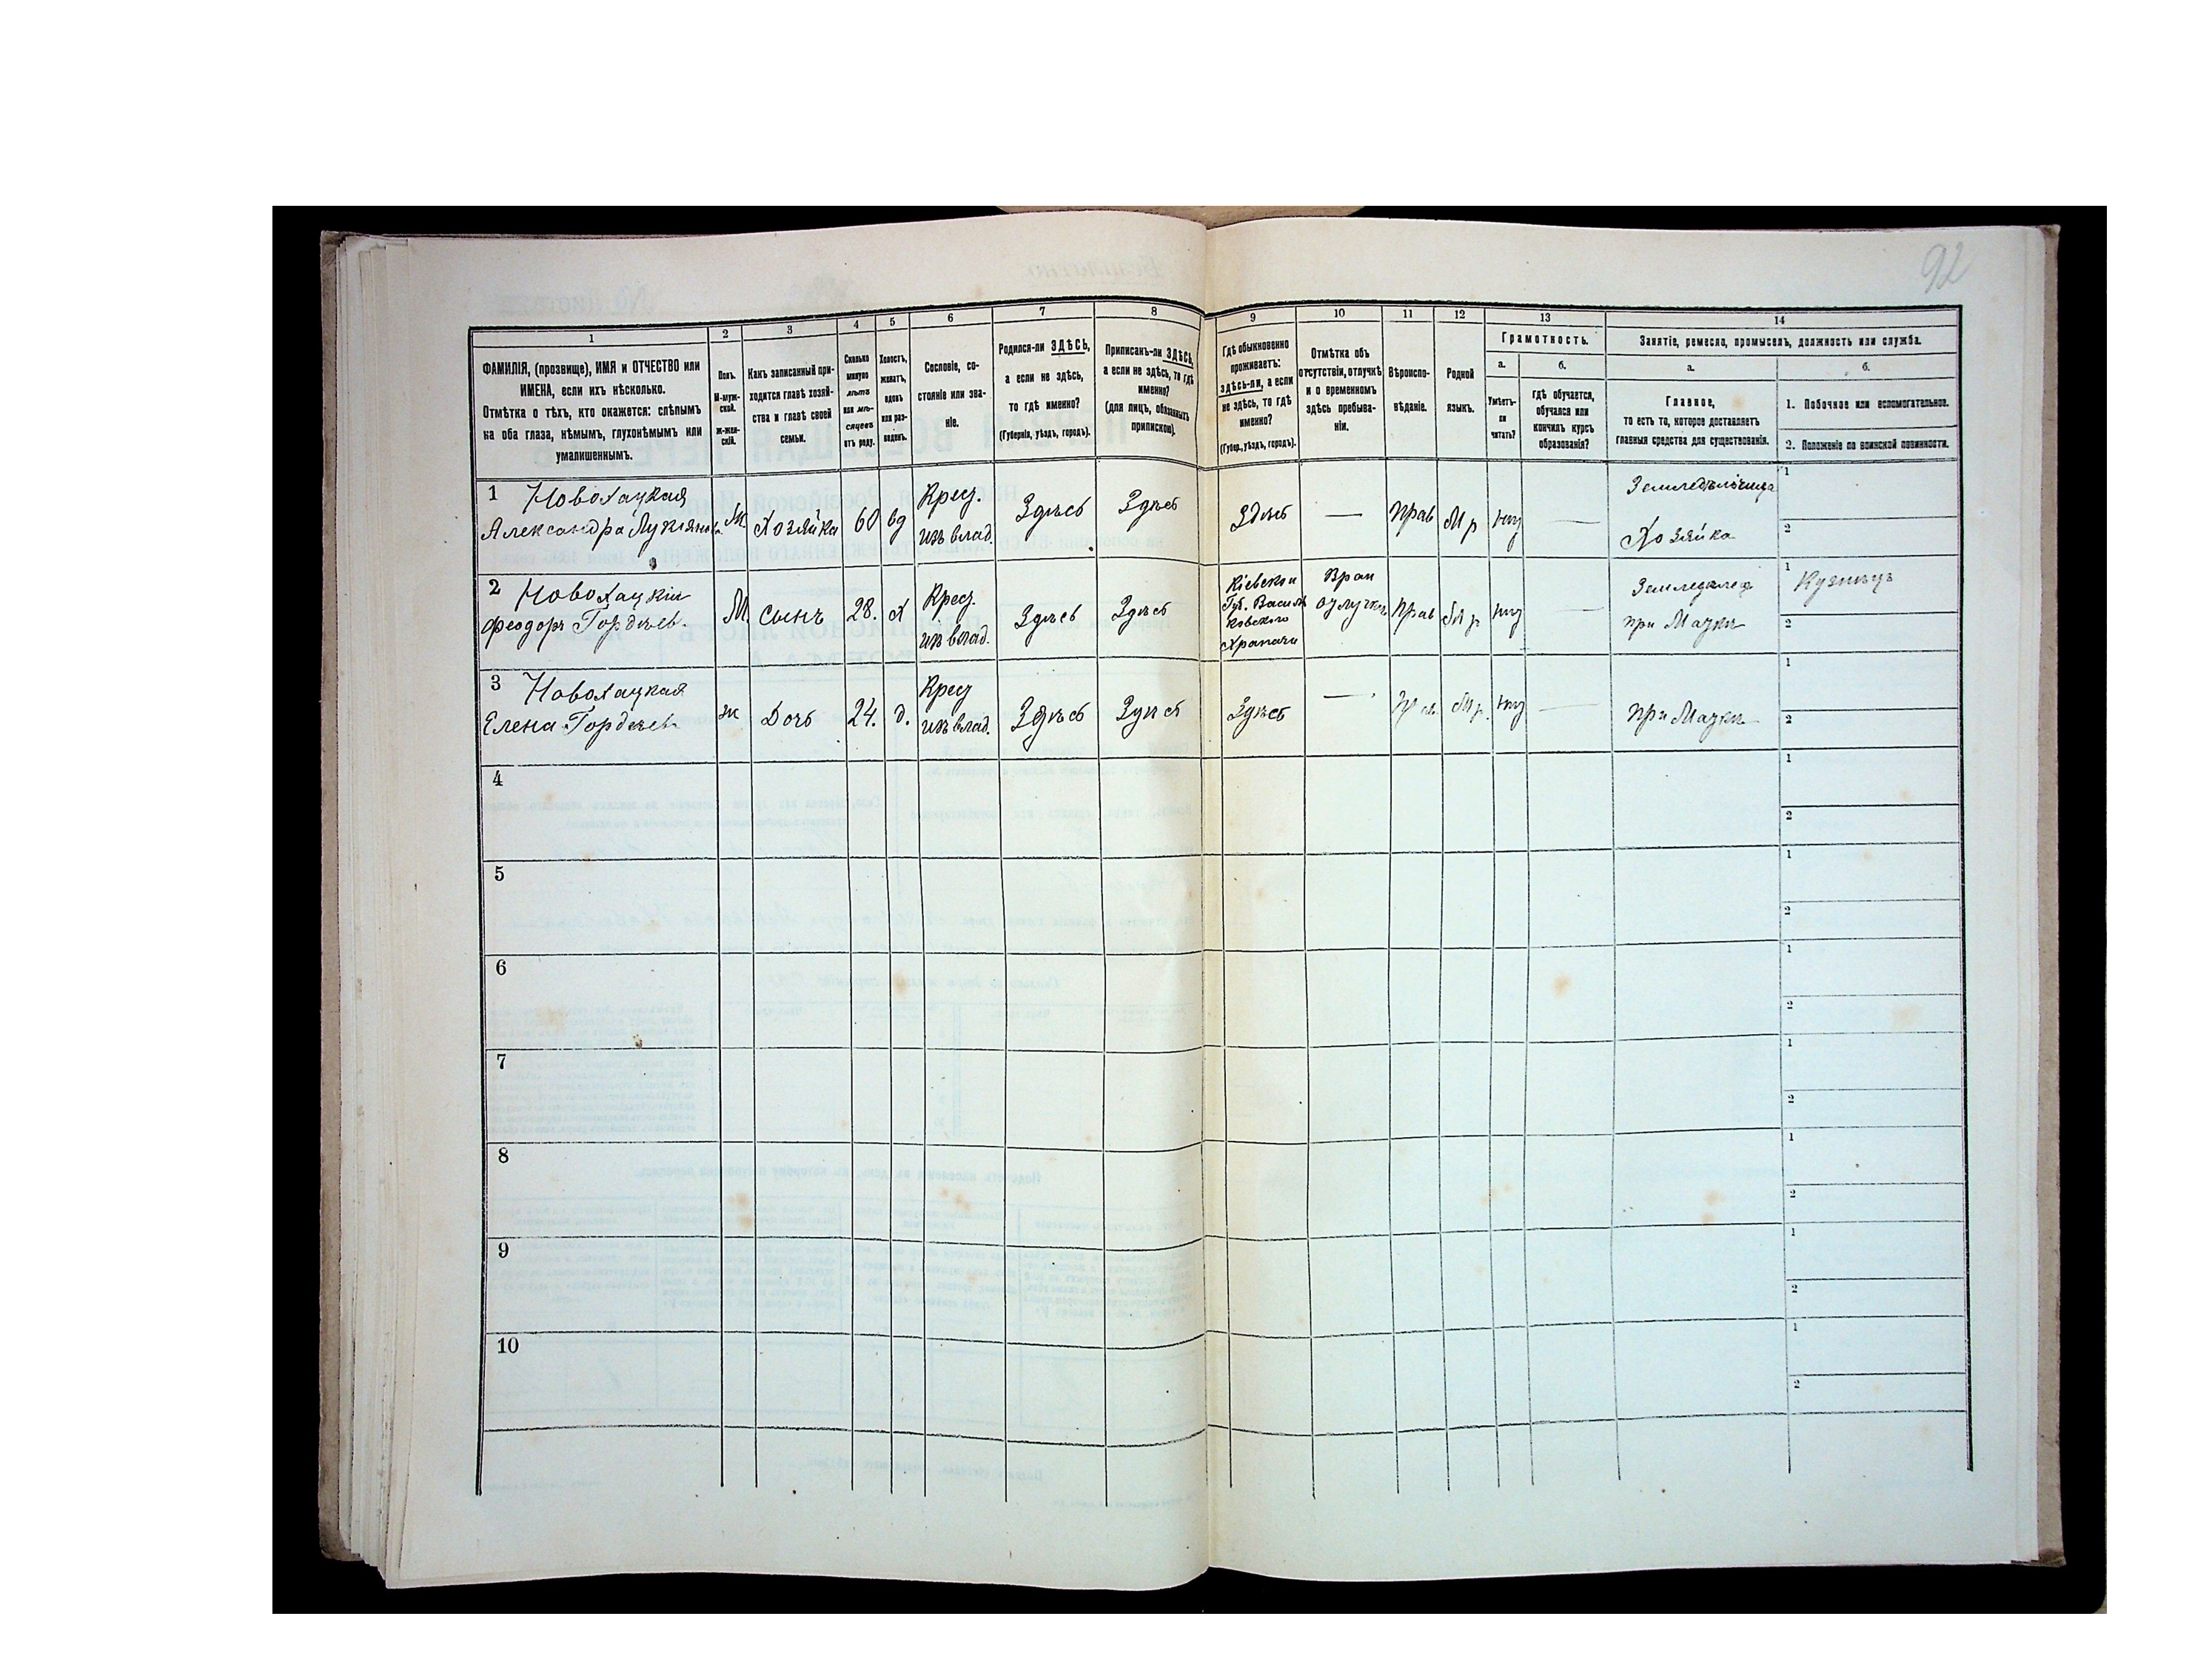 92
1
2
3
4
5
6
7
8
9
10
11
12
13
14
ФАМИЛІЯ, (прозвище), ИМЯ и ОТЧЕСТВО или
ИМЕНА, если ихъ нѣсколько.
Отмѣтка о тѣхъ, кто окажется: слѣпымъ
на оба глаза, нѣмымъ, глухонѣмымъ или
умалишеннымъ.
Полъ.
М-муж-
ской.
Ж-жен-
скій.
Какъ записанный при-
ходится главѣ хозяй-
ства и главѣ своей
семьи.
Сколько
минуло
лѣтъ
или мѣ-
сяцевъ
отъ роду.
Холостъ,
женатъ,
вдовъ
или раз-
веденъ.
Сословіе, со-
стояніе или зва-
ніе.
Родился-ли ЗДѢСЬ,
а если не здѣсь,
то гдѣ именно?
(Губернія, уѣздъ, городъ).
Приписанъ-ли ЗДѢСЬ,
а если не здѣсь, то гдѣ
именно?
(для лицъ, обязанныхъ
припискою).
Гдѣ обыкновенно
проживаетъ:
здѣсь-ли, а если
не здѣсь, то гдѣ
именно?
(Губер., уѣздъ, городъ).
Отмѣтка объ
отсутствіи, отлучкѣ
и о временномъ
здѣсь пребыва-
ніи.
Вѣроиспо-
вѣданіе.
Родной
языкъ.
Грамотность.
а.
Умѣетъ-
ли
читать?
б.
гдѣ обучается,
обучался или
кончилъ курсъ
образованія?
Занятіе, ремесло, промыселъ, должность или служба.
а.
Главное,
то есть то, которое доставляетъ
главныя средства для существованія.
б.
1. Побочное или вспомогательное.
2. Положеніе по воинской повинности.
1 Новохацкая
Александра Лукіянов.
Ж
Хозяйка
60
вд
Крест.
изъ влад.
Здѣсь
Здѣсь
Здѣсь
—
Прав
Мр
нѣт
—
Земледѣлица
Хозяйка
1
2
2 Новохацкій
Феодоръ Гордѣев.
М.
Сынъ
28.
Х
Крест.
изъ влад.
Здѣсь
Здѣсь
Кіевской
Губ. Василь
ковского
Врем
отлучка
Прав
Мр
нѣт
—
Земледѣлец
при Матки
1 Кузнецъ
2
3 Новохацкая
Елена Гордѣев.
ж
Дочь
24.
д.
Крест
изъ влад.
Здѣсь
Здѣсь
Здѣсь
—
Мр.
нѣт
—
при Матки
1
2
4
1
2
5
1
2
6
1
2
7
1
2
8
1
2
9
1
2
10
1
2